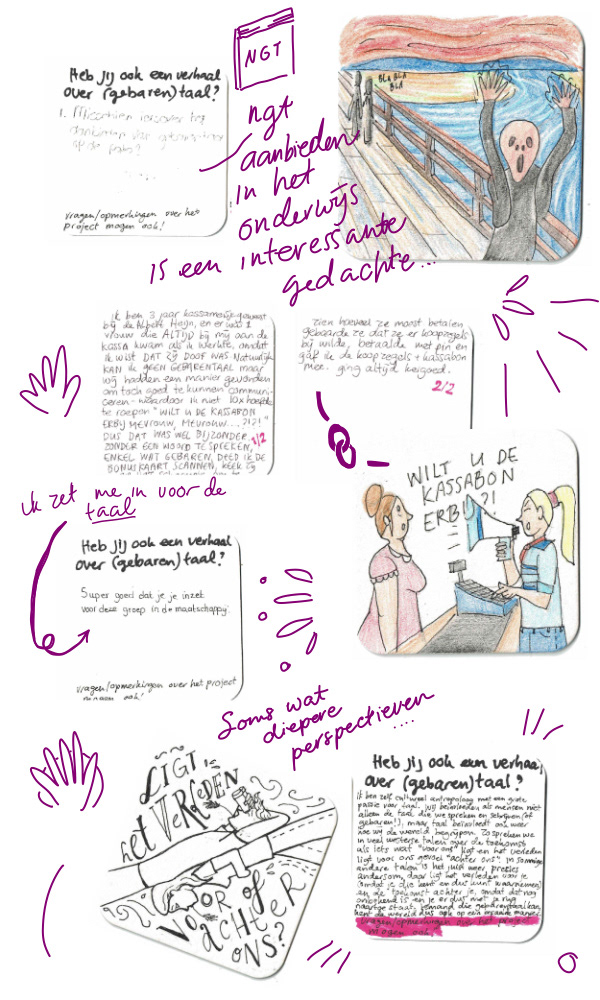 NGT
Heb jij ook een verhaal
over (gebaren)taal?
1. Misschien iets over het
aanbieden van gebaren-taal
op de pabo?
vragen/opmerkingen over het
project mogen ook!
ngt
aanbieden
in het
onderwijs
is een interessante
gedachte...
BLA BLA
BLA
ik ben 3 jaar kassameisje geweest
bij de Albert Heijn, en er was 1
vrouw die ALTIJD bij mij aan de
kassa kwam als ik werkte, omdat
ik wist DAT ZIJ DOOF WAS Natuurlijk
KAN ik GEEN GEBARENTAAL maar
wij hadden een manier gevonden
om toch goed te kunnen communi-
ceren - waardoor ik niet 10x hoefde
te roepen "WILT U DE KASSABON
ERBIJ MEVROUW, MEVROUW...?!?!"
DUS DAT WAS WEL BIJZONDER
ZONDER EEN WOORD TE SPREKEN,
ENKEL WAT GEBAREN, DEED IK DE
BONUSKAART SCANNEN, KEEK ZIJ
1/2
zien hoeveel ze moest betalen
gebaarde ze dat ze er koopzegels
bij wilde, betaalde met pin en
gaf ik de koopzegels + kassabon
mee. ging altijd keigoed.
2/2
WILT U DE
KASSABON
ERBIJ?!
ik zet me in voor de
taal
Heb jij ook een verhaal
over (gebaren)taal?
Super goed dat je je inzet
voor deze groep in de maatschappij.
vragen/opmerkingen over het project
mogen ook!
Soms wat
diepere
perspectieven
....
LIGT
HET VERLEDEN
VOOR OF
ACHTER
ONS?
Heb jij ook een verhaal
over (gebaren)taal?
ik ben zelf cultureel antropoloog met een grote
passie voor taal. Wij beïnvloeden als mensen niet
alleen de taal die we spreken en schrijven (of
gebaren!), maar taal beïnvloedt ook weer
hoe wij de wereld begrijpen. Zo spreken we
in veel westerse talen over de toekomst
als iets wat "voor ons" ligt en het verleden
ligt voor ons gevoel "achter ons". In sommige
andere talen is het juist weer precies
andersom, daar ligt het verleden voor je
(omdat je die kent en dus kunt waarnemen)
en de toekomst achter je, omdat dat nog
onbekend is en je er dus met je rug
naartoe staat. Iemand die gebarentaal kan,
kent de wereld dus ook op een bepaalde manier.
vragen/opmerkingen over het project
mogen ook!